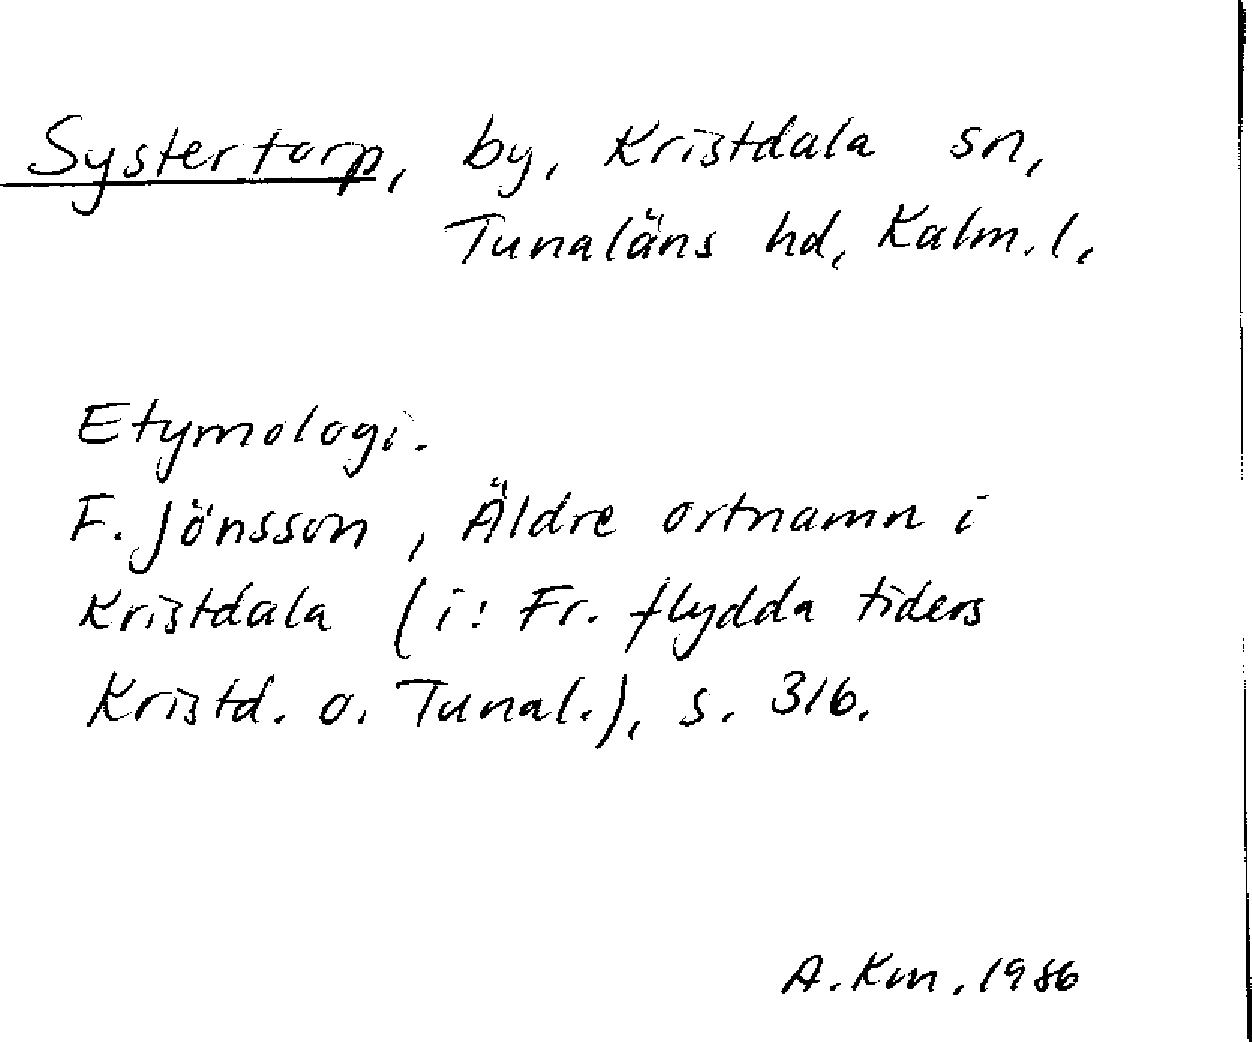 Systertorp, by, Kristdala sn,
Tunaläns hd, Kalm. l.
Etymologi.
F. Jönsson, Äldre ortnamn i
Kristdala (i: Fr. flydda tiders
Kristd. o. Tunal.), s. 316.
A. Km. 1986